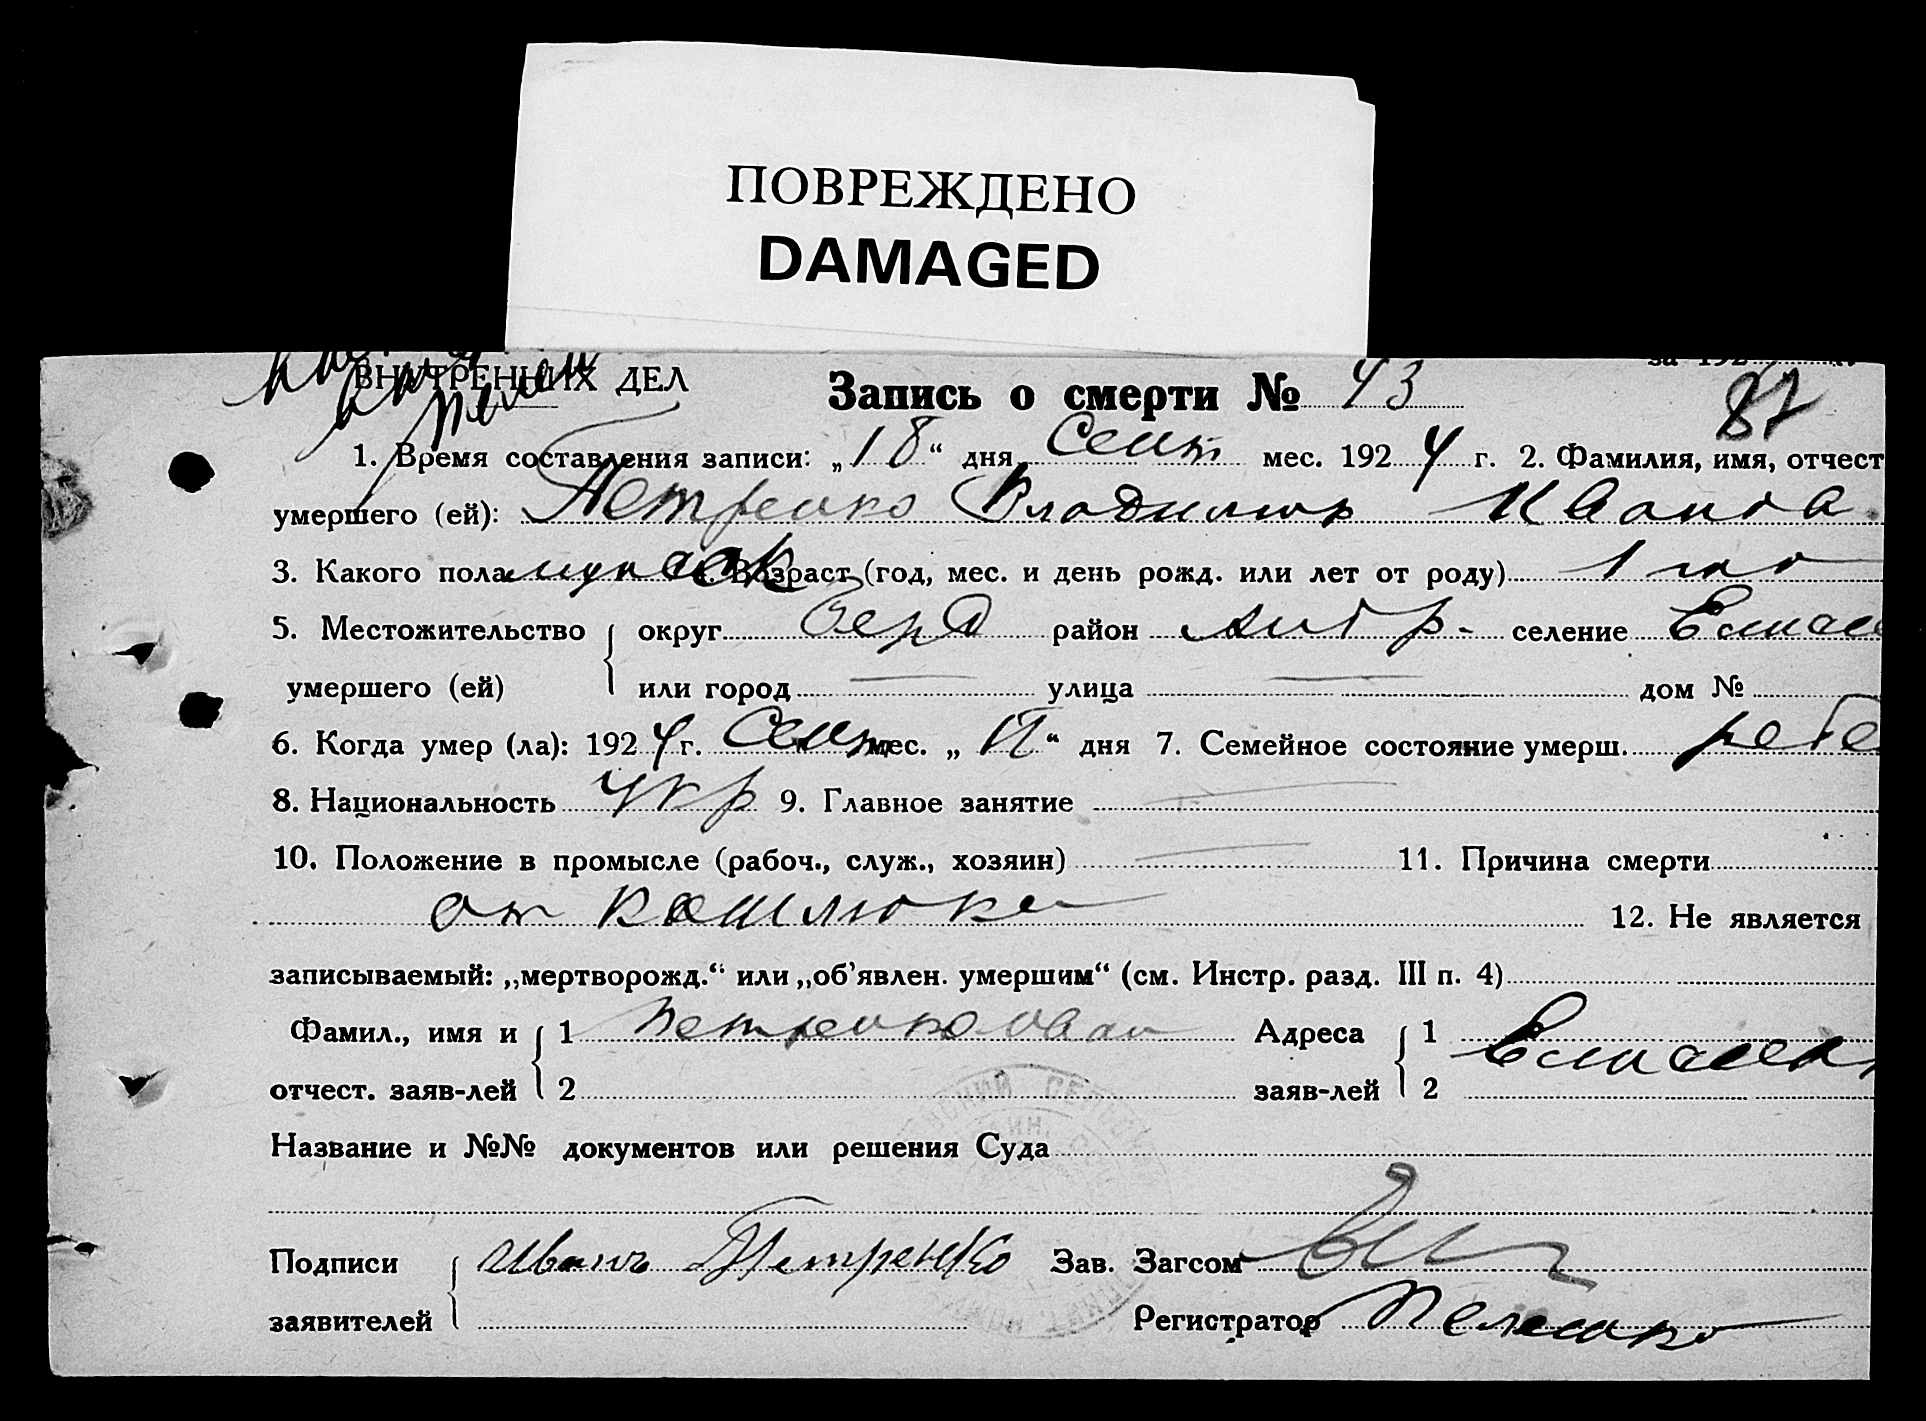 ПОВРЕЖДЕНО
DAMAGED
ВНУТРЕННИХ ДЕЛ
за 192
Запись о смерти № 43
87
1. Время составления записи: „18“ дня Сент мес. 1924 г. 2. Фамилия, имя, отчест
умершего (ей): Петренко Владимир Иванов
3. Какого пола мужск 4. Возраст (год, мес. и день рожд. или лет от роду) 1 год
5. Местожительство округ Берд район селение
умершего (ей) или город — улица — дом №
6. Когда умер (ла): 1924 г. Сент мес. „17“ дня 7. Семейное состояние умерш. ребе
8. Национальность укр 9. Главное занятие —
10. Положение в промысле (рабоч., служ., хозяин) — 11. Причина смерти
от кашлюка 12. Не является
записываемый: „мертворожд.“ или „об’явлен. умершим“ (см. Инстр. разд. III п. 4)
Фамил., имя и 1 Петренко Иван Адреса 1
отчест. заяв-лей 2 заяв-лей 2
Название и №№ документов или решения Суда
Подписи Иванъ Петренко Зав. Загсом
заявителей Регистратор